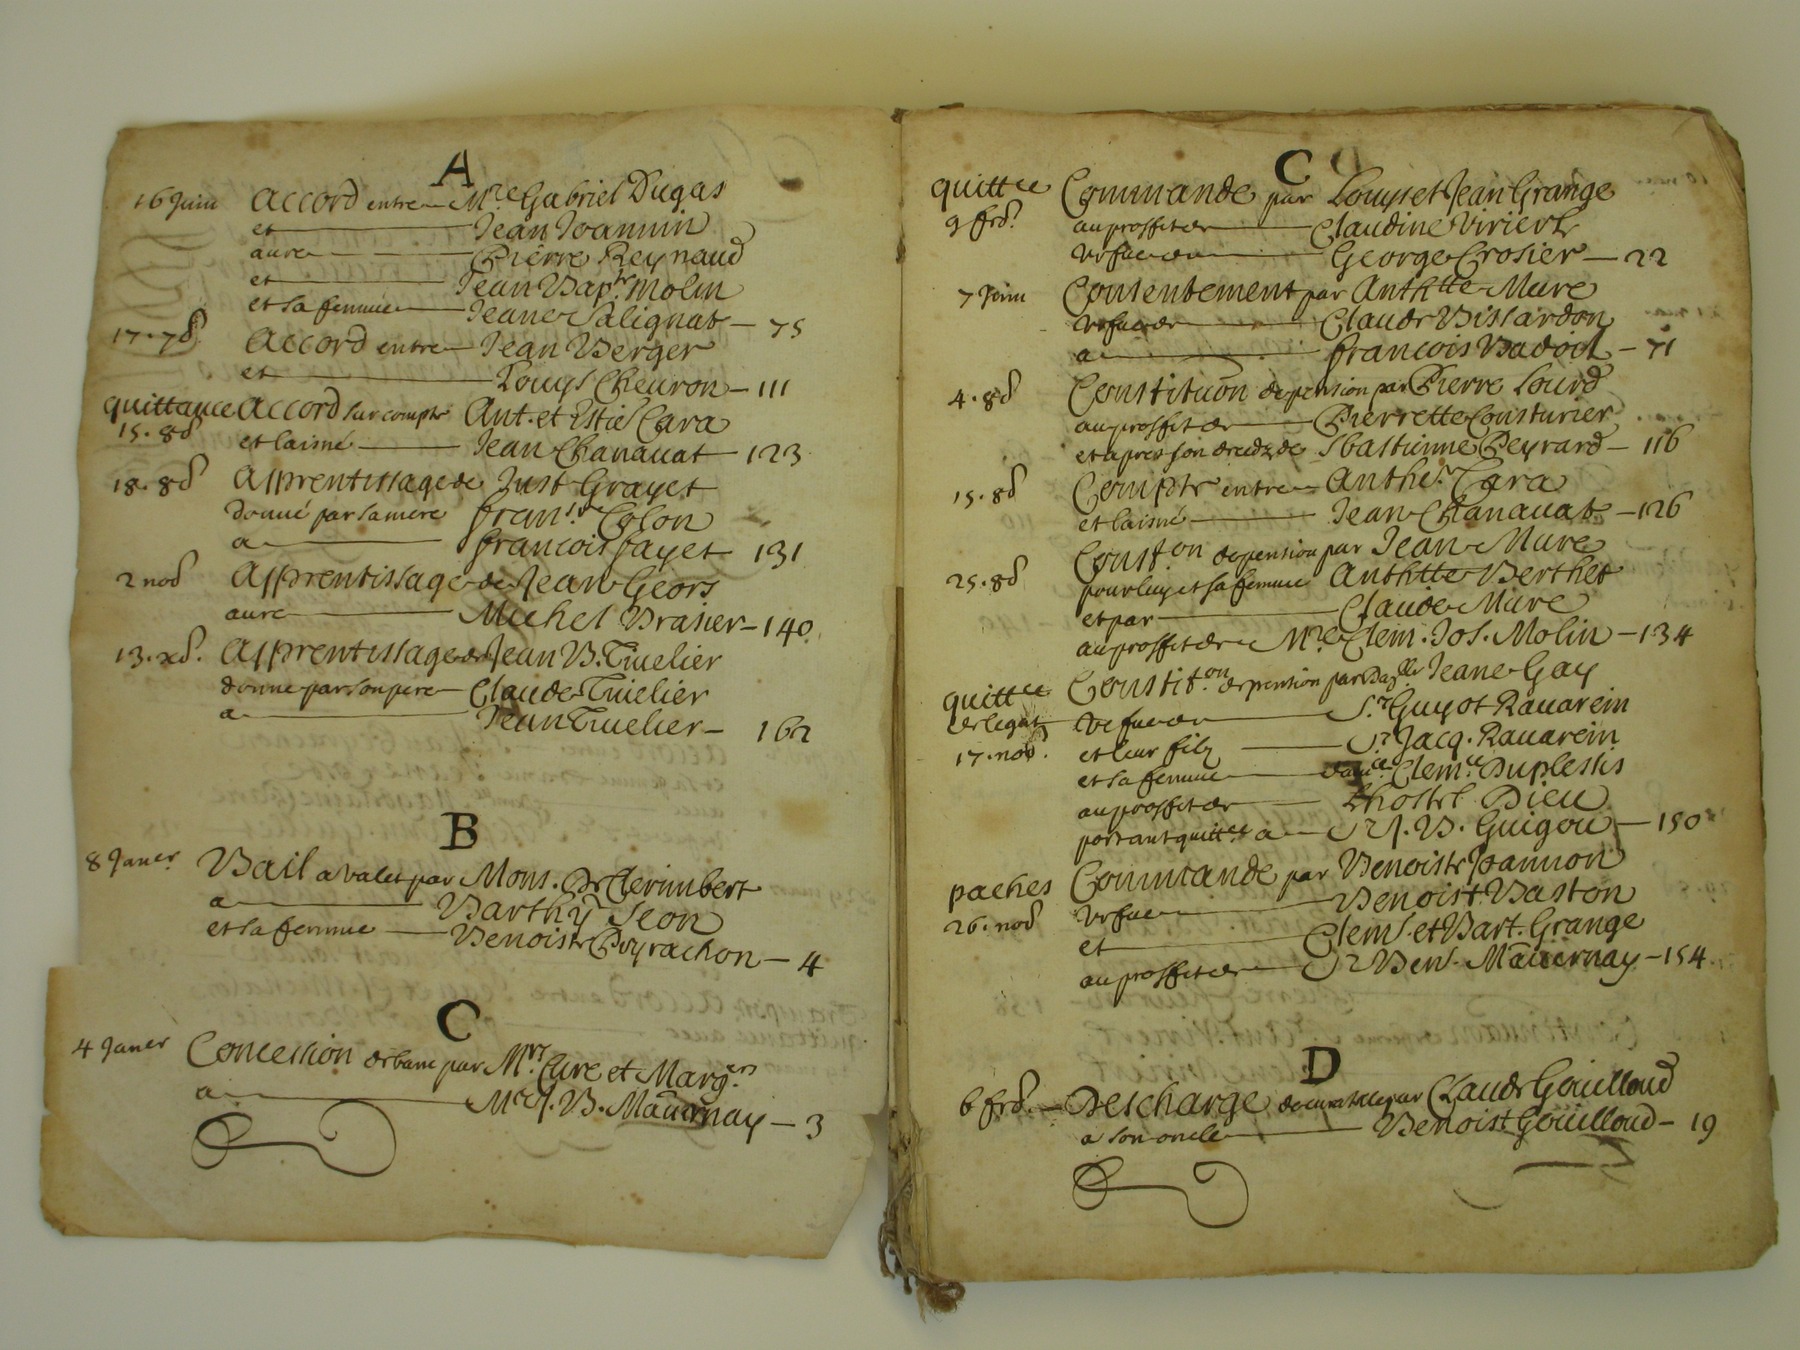 A
16 Juin Accord entre Mre Gabriel Dugas
et Jean Joannin
avec Pierre Reynaud
et Jean Bapte Molin
et sa femme Jeane Salignat — 75
17. 7b Accord entre Jean Berger
et Louys Cheuron — 111
quittance Accord sur compte Ant. et Estie Cara
15. 8b et laisné Jean Chanauat — 123
18. 8b Apprentissage de Just Grayet
donné par sa mere franse Colon
a francois fayet 131
2 nob Apprentissage de Jean Geors
avec Michel Brasier — 140
13. xb. Apprentissage de Jean B. Tiuelier
donné par son pere Claude Tiuelier
a Jean Tiuelier — 162
B
8 Janer Bail a valet par Mons. De Clerimbert
a Barthy Seon
et sa femme Benoiste Poyrachon — 4
C
4 Janer Concession de banc par Mrs Cure et Margers
a Mre J. B. Mauernay — 3
C
quittce Commande par Louys et Jean Grange
9 frb. au proffit de Claudine Viriert
vefue de George Crosier — 22
7 Juin Consentement par Anthtte Mure
vefue de Claude Bissardon
a francois Badoit — 71
4. 8b Constituon de pension par Pierre Lourd
au proffit de Pierrette Cousturier
et apres son decedz de Sbastienne Peyrard — 116
15. 8b Compte entre Anthe. Cara
et laisné Jean Chanauat — 126
Conston de pension par Jean Mure
25. 8b pour luy et sa femme Anthtte Berthet
et par Claude Mure
au proffit de Mre Clem. Jos. Molin — 134
quittce Constiton de pension par Dalle Jeane Gay
de legat vefue de Sr Guyot Rauarein
17. nob. et leur filz Sr Jacq. Rauarein
et sa femme Clemce Duplessis
au proffit de Lhostel Dieu
portant quittce a Sr J. B. Guigou — 150
paches Commande par Benoiste Joannon
26. nob vefue Benoist Baston
et Clems. et Bart. Grange
au proffit de Sr Ben. Mauernay — 154
D
6 frb. — Descharge de curatelle par Claude Goüilloud
a son oncle Benoist Goüilloud — 19